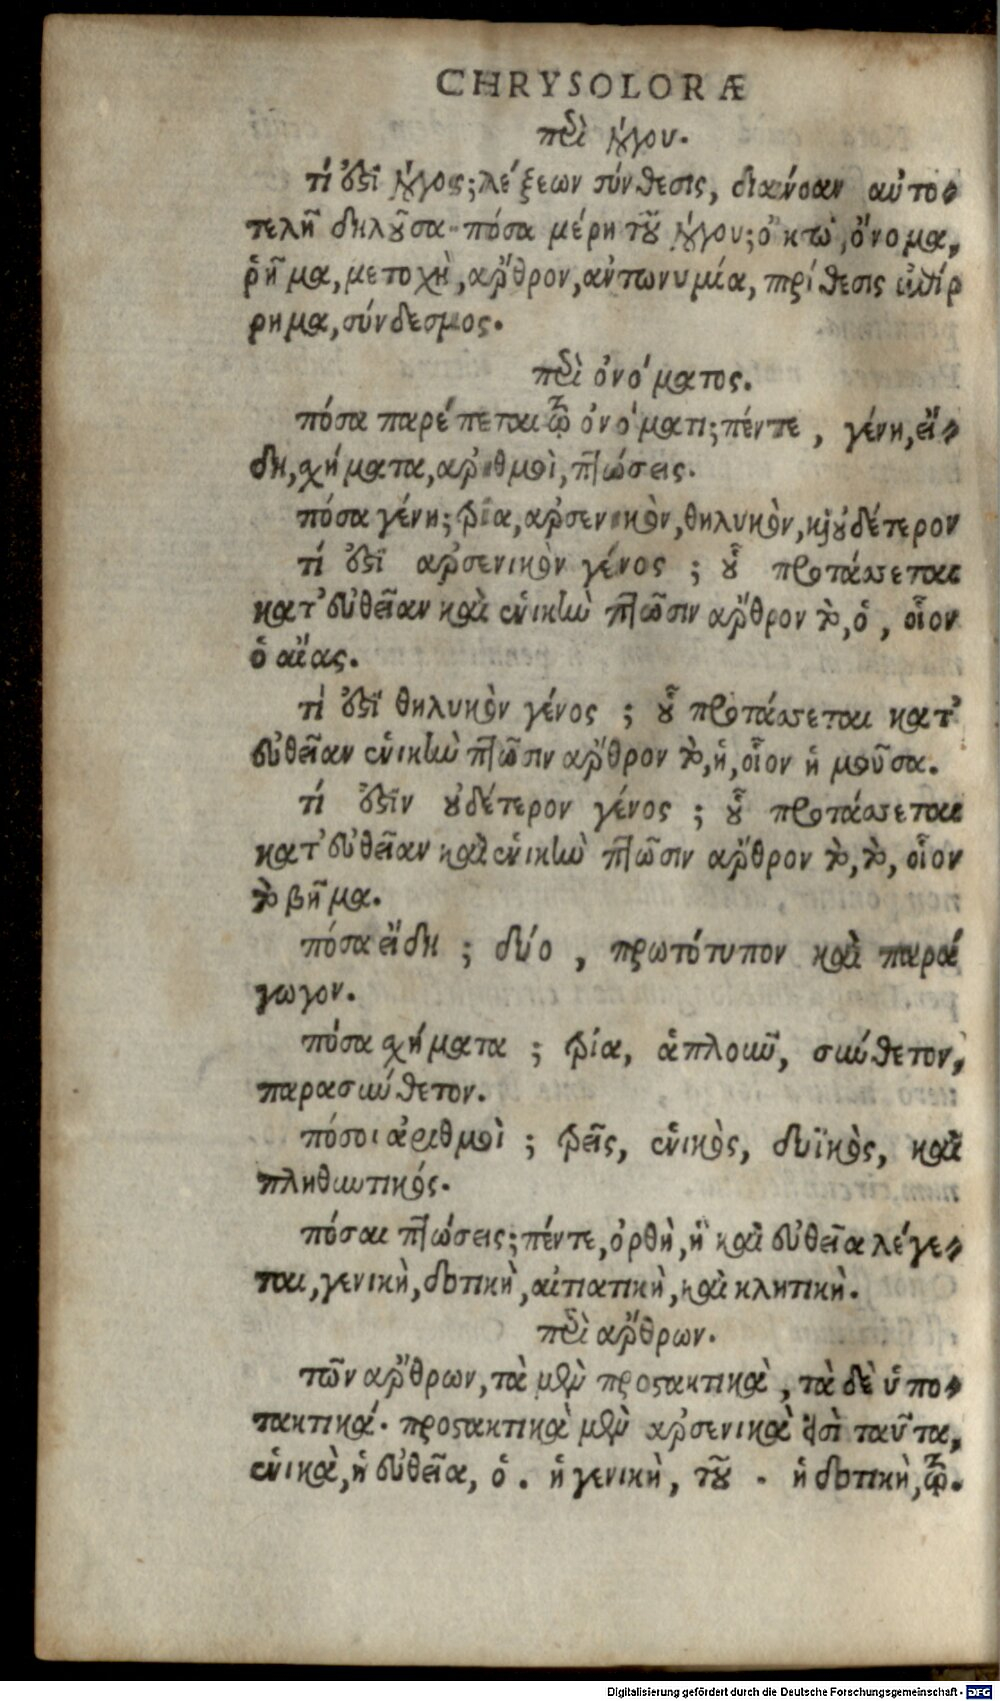 CHRYSOLORÆ
περὶ λόγου.
τί ἐστὶ λόγος; λέξεων σύνθεσις, διάνοιαν αὐτο-
τελῆ δηλοῦσα· πόσα μέρη τοῦ λόγου; ὀκτώ, ὄνομα,
ῥῆμα, μετοχὴ, ἄρθρον, ἀντωνυμία, πρόθεσις ἐπίρ
ρημα, σύνδεσμος.
περὶ ὀνόματος.
πόσα παρέπεται τῷ ὀνόματι; πέντε, γένη, εἴ-
δη, σχήματα, ἀριθμοὶ, πτώσεις.
πόσα γένη; τρία, ἀρσενικὸν, θηλυκὸν, καὶ οὐδέτερον
τί ἐστὶ ἀρσενικὸν γένος; οὗ προτάσσεται
κατ' εὐθεῖαν καὶ ἑνικὴν πτῶσιν ἄρθρον τὸ, ὁ, οἷον
ὁ αἴας.
τί ἐστὶ θηλυκὸν γένος; οὗ προτάσσεται κατ'
εὐθεῖαν ἑνικὴν πτῶσιν ἄρθρον τὸ, ἡ, οἷον ἡ μοῦσα.
τί ἐστὶν οὐδέτερον γένος; οὗ προτάσσεται
κατ' εὐθεῖαν καὶ ἑνικὴν πτῶσιν ἄρθρον τὸ, τὸ, οἷον
τὸ βῆμα.
πόσα εἴδη; δύο, πρωτότυπον καὶ παρά
γωγον.
πόσα σχήματα; τρία, ἁπλοῦν, σύνθετον,
παρασύνθετον.
πόσοι ἀριθμοὶ; τρεῖς, ἑνικὸς, δυϊκὸς, καὶ
πληθυντικός.
πόσαι πτώσεις; πέντε, ὀρθὴ, ἣ καὶ εὐθεῖα λέγε-
ται, γενικὴ, δοτικὴ, αἰτιατικὴ, καὶ κλητικὴ.
περὶ ἄρθρων.
τῶν ἄρθρων, τὰ μὲν προστακτικὰ, τὰ δὲ ὑπο-
τακτικά· προστακτικὰ μὲν ἀρσενικὰ εἰσὶ ταῦτα,
ἑνικὰ, ἡ εὐθεῖα, ὁ. ἡ γενικὴ, τοῦ. ἡ δοτικὴ, τῷ.
Digitalisierung gefördert durch die Deutsche Forschungsgemeinschaft - DFG